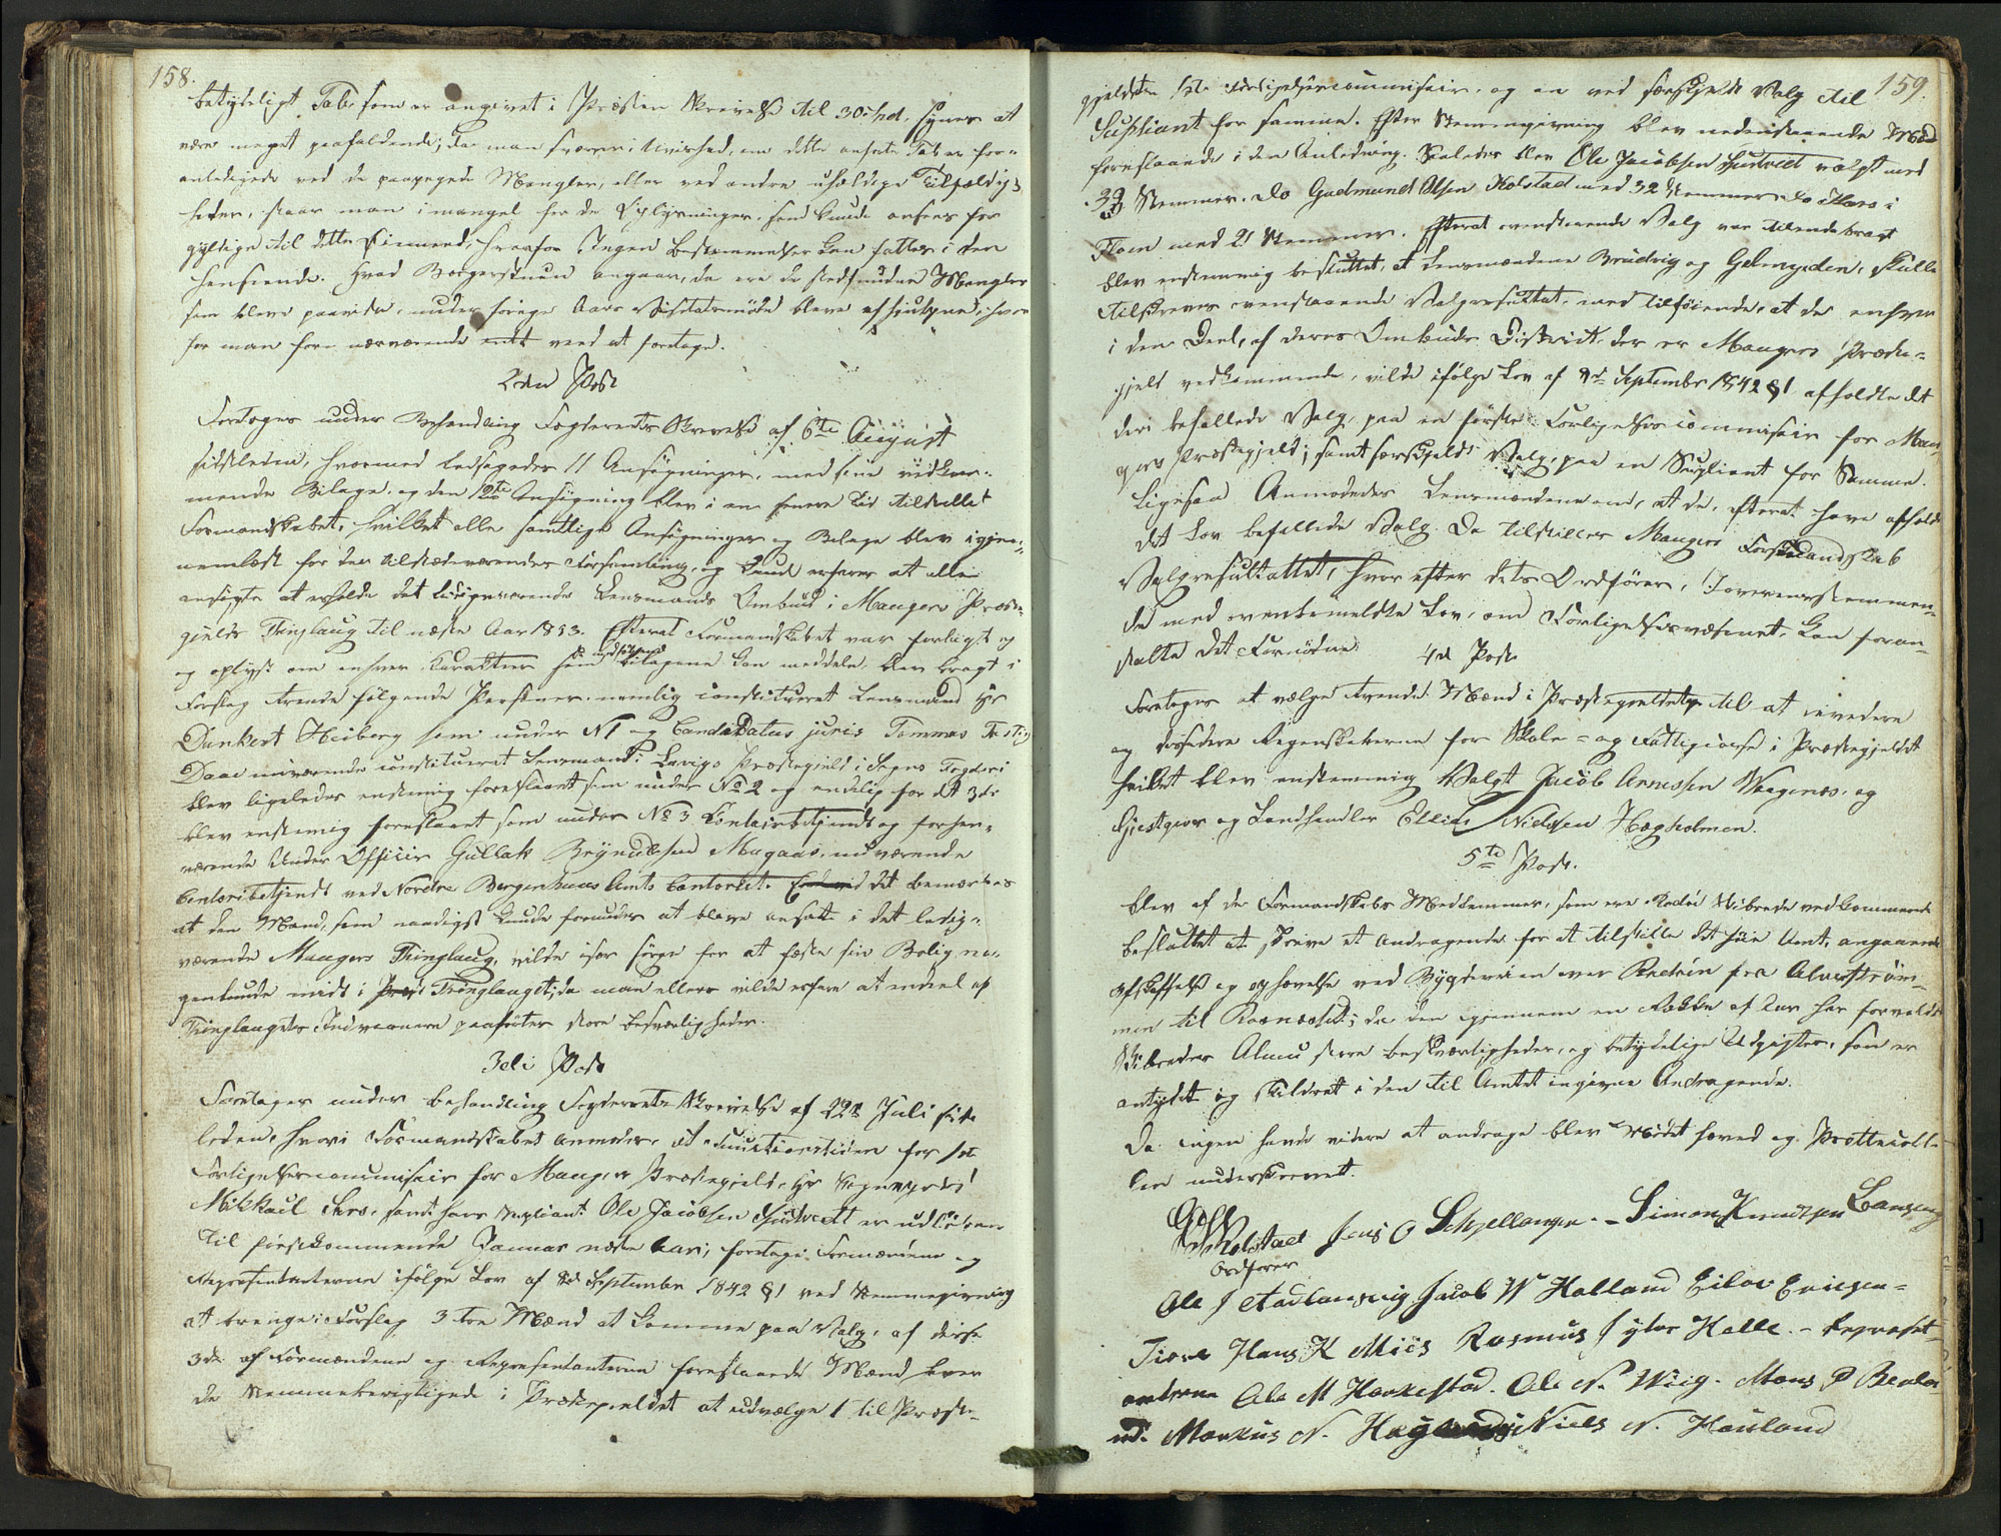 158.
betydeligt Tab som er angivet i Præsten Skrivelse til 30: spd, synes at
være meget paafaldende; da man svæver i Uvished, om dette anførte Tab er for-
anledigede ved de paapegede Mangler, eller ved andre uheldige Tilfældig-
heder, staar man i mangel for de Oplysninger, som kunde ansees for
gyldige til dette Øiemeed, hvorfor Ingen bestemmelse kan fattes i den
henseende. Hvad Borgerstuen angaar, da ere de stedfundne Mangler
som bleve paaviste, under forige Aars Visitatsmøde bleve afhiulpne, hvor
for man fore nærværende intet veed at foretage.
2den Post
Foretoges under Behandling Fogderiets Skrivelse af 6te August
sidstleden, hvormed ledsagedes 11 Ansøgninger, med sine vedkom-
mende Bilage, og den 12te Ansøgning blev i en senere Tid tilstillet
Formandskabet, hvilket alle samtlige Ansøgninger og Bilage blev igjen-
nemlæst for den tilstedeværendes Forsamling, og kunde erfares at alle
ansøgte at erholde det ledigværende Lensmands Ombud i Mangers Præste-
gjelds Thinglaug til næste Aar 1853. Efterat Formandskabet var forliigt og
og oplyst om enhver Karakteer som vedføiede Bilagene kan meddele, blev bragt i
Forslag trende følgende Personer, nemlig constitueret Lensmand Hr
Dankert Heiberg som under N 1 og Candidatus juris Tommas
Daae nuværende constitueret Lensmand i Lavigs Præstegield i Sogns Fogderi
blev ligeledes enstemig foreslaaet som under No 2 og endelig for det 3die
blev enstemig foreslaaet som under No 3 Contoirbetjendt og forhen-
værende Under Officir Gullak Brynildsen Mugaas, nuværende
Contoribetjendt ved Nordre Bergenhuus Amts Contorket. det bemærkes
at den Mand, som naadigst kunde formedes at blive ansatte i det ledig-
værende Mangers Thinglaug, vilde især sørge for at fæste sin Bolig no-
genlunde midt i Thinglauget; da man ellers vilde erfare at endeel af
Thinglaugets Indvaanere paaførtes store besværligheder.
3die Post
Foretages under behandling Fogderiets Skrivelse af 22d Juli sidst
leden, hvori Formandskabet anmodes, at Functionstiden for 1ste
Forligelsescommisair for Mangers Præstegjeld, Hr Sogneprest
Mikkail Aars, samt hans Supliant Ole Jacobsen Hjertvedt er udløben
til førstkommende Januar næste Aar, foretage Formændene og
Representanterne ifølge Lov af 8d September 1842 §1 ved Stemmegivning
at bringe i Forslag 3 tre Mænd at komme paa Valg, af disse
3de af Formændene og Representanterne foreslaaede Mænd haver
de Stemmeberigtigede i Præstegieldet at udvælge 1 til Præste-
159.
gjeldets 1ste Forligelsescommisair, og en ved særskjeldt Valg til
Supliant for samme. Efter Stemmegivning blev nedenstaaende Mænd
foreslaaede i den Anledning. Saaledes blev Ole Jacobsen Hjertvedt valgt med
33 Stemmer. Do Gudmund Olsen Kolstad med 32 Stemmer Do Hans i
Floen med 21 Stemmer. Efterat ovenstaaende Valg var tilendebragt
blev enstemmig besluttet, at Lensmændene Brudvig og Gelmyrden, skulle
tilskrives ovenstaaende Valgresultat, med tilføiende, at de enhver
i den Deel, af deres Ombuds District, der er Mangers Præste-
gjeld vedkommende, vilde ifølge Lov af 8d September 1842 §1 afholdte det
deri befallede Valg, paa en første Forligelsescommisair for Man-
gers Præstegjeld; samt særskjeldt Valg, paa en Supliant for Samme.
Ligesaa Anmodedes Lensmændene om, at de, efterat have afholdt
det Lov befallede Valg. Da tilstilles Mangers Formandskab
Valgresultattet, hvorefter dets Ordfører, i overensstemmen-
de med ovenbemeldte Lov, om Forligelsesvæsenet, kan foran-
stalte det Fornødne
4d Post
Foretoges at vælge trende Mænd i Præstegieldet til at revedere
og desidere Regenskaberne for Skole- og Fattigcasse i Præstegjeldet
hvilket blev enstemmig Valgt Jacob Annesen Waagenes, og
Gjestgiver og Landhandler Ellius Nielsen Hægholmen.
5te Post.
blev af de Formandskabs Medlemmer, som ere Radøe Skibrede vedkommende
besluttet at skrive et Andragende for at tilstille det høie Amt, angaaende
afskaffelse og ophævelse ved Bygdeveien over Radøen fra Alverstrøm-
men til Rosnæsset; da den igjennem en Rekke af Aar har forvoldt
Skibredes Almue store besværligheder, og betydelige Udgifter, som er
antydet og skildret i den til Amtet ingivne Andragende.
Da ingen havde videre at andrage blev Mødet hæved og Prottecoll-
len underskrevet.
GOlsen
Kolstad Jens O Schjellanger.- Simon Knudsen Langøen
Ordfører
Ole J Aadlansvig Jacob W Halland Eilov Ericsen-
Tiore Hans K Miøs Rasmus Sylve Halle.- Represet-
anterne Ole M Haukestad. Ole N. Wiig. Mons P Beula
nd. Markus N. Niels N. Hauland